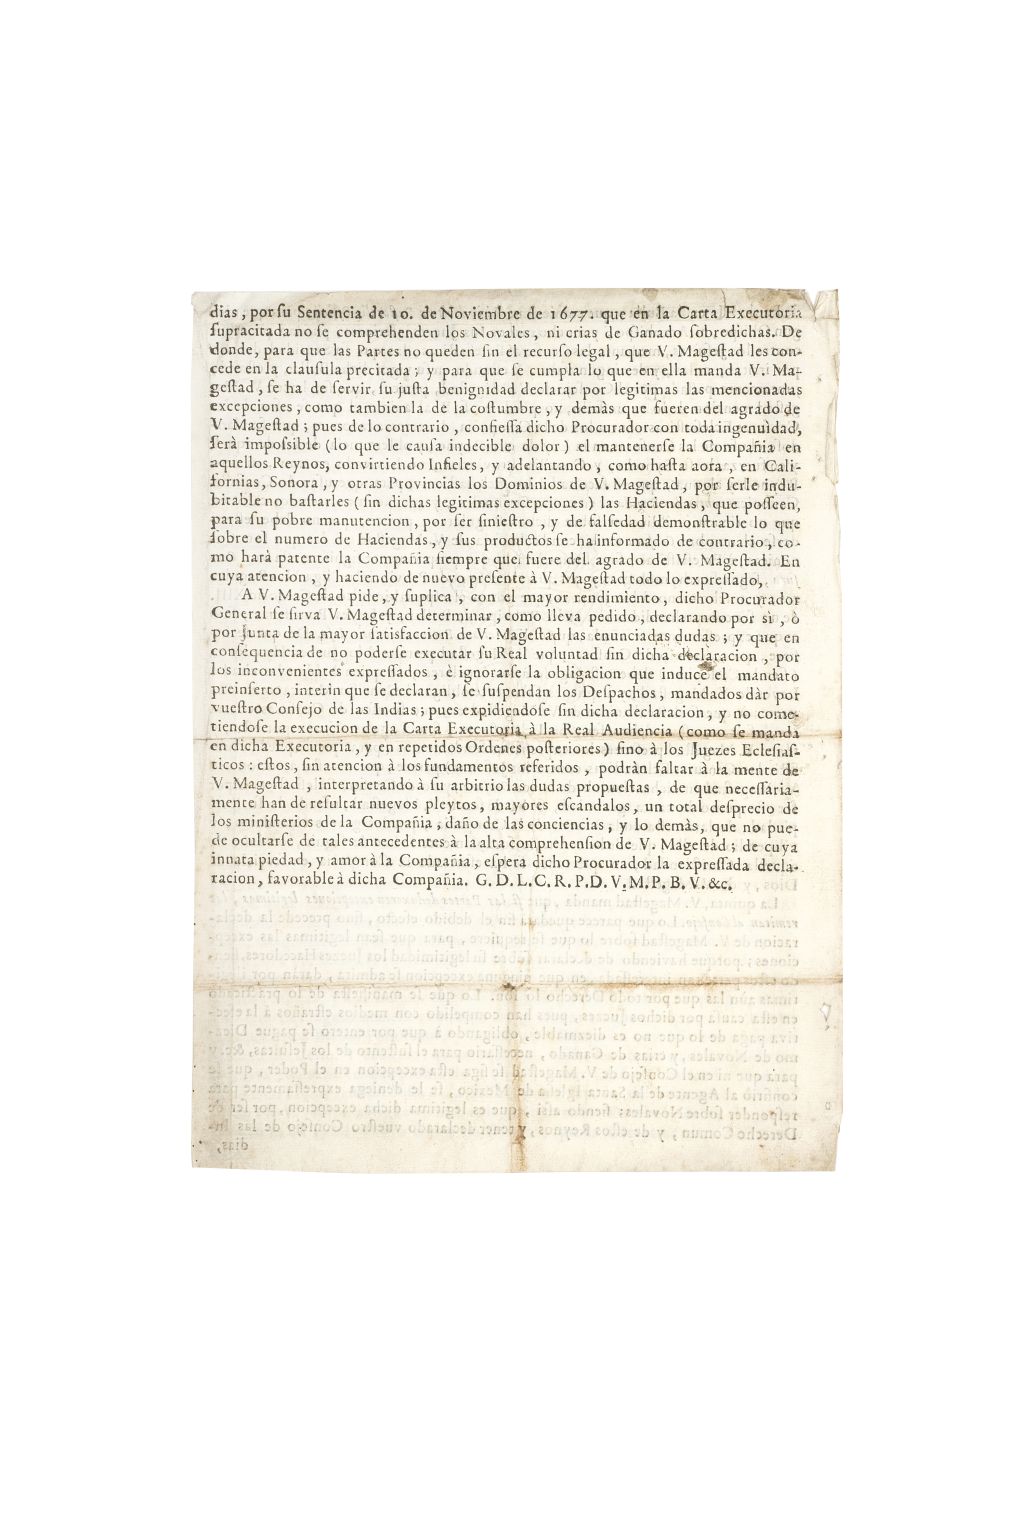 dias, por ſu Sentencia de 10. de Noviembre de 1677. que en la Carta Executoria
ſupracitada no ſe comprehenden los Novales, ni crias de Ganado ſobredichas. De
donde, para que las Partes no queden ſin el recurſo legal, que V. Mageſtad les con-
cede en la clauſula precitada; y para que ſe cumpla lo que en ella manda V. Ma-
geſtad, ſe ha de ſervir ſu juſta benignidad declarar por legitimas las mencionadas
excepciones, como tambien la de la coſtumbre, y demàs que fueren del agrado de
V. Mageſtad; pues de lo contrario, confieſſa dicho Procurador con toda ingenuidad,
ſerà impoſsible (lo que le cauſa indecible dolor) el mantenerſe la Compañia en
aquellos Reynos, convirtiendo Infieles, y adelantando, como haſta aora, en Cali-
fornias, Sonora, y otras Provincias los Dominios de V. Mageſtad, por ſerle indu-
bitable no baſtarles (ſin dichas legitimas excepciones) las Haciendas, que poſſeen,
para ſu pobre manutencion, por ſer ſinieſtro, y de falſedad demonſtrable lo que
ſobre el numero de Haciendas, y ſus productos ſe ha informado de contrario, co-
mo harà patente la Compañia ſiempre que fuere del agrado de V. Mageſtad. En
cuya atencion, y haciendo de nuevo preſente à V. Mageſtad todo lo expreſſado,
A V. Mageſtad pide, y ſuplica, con el mayor rendimiento, dicho Procurador
General ſe ſirva V. Mageſtad determinar, como lleva pedido, declarando por sì, ò
por Junta de la mayor ſatisfaccion de V. Mageſtad las enunciadas dudas; y que en
conſequencia de no poderſe executar ſu Real voluntad ſin dicha declaracion, por
los inconvenientes expreſſados, è ignorarſe la obligacion que induce el mandato
preinſerto, interin que ſe declaran, ſe ſuſpendan los Deſpachos, mandados dàr por
vueſtro Conſejo de las Indias; pues expidiendoſe ſin dicha declaracion, y no come-
tiendoſe la execucion de la Carta Executoria à la Real Audiencia (como ſe manda
en dicha Executoria, y en repetidos Ordenes poſteriores) ſino à los Juezes Ecleſiaſ-
ticos: eſtos, ſin atencion à los fundamentos referidos, podràn faltar à la mente de
V. Mageſtad, interpretando à ſu arbitrio las dudas propueſtas, de que neceſſaria-
mente han de reſultar nuevos pleytos, mayores eſcandalos, un total deſprecio de
los miniſterios de la Compañia, daño de las conciencias, y lo demàs, que no pue-
de ocultarſe de tales antecedentes à la alta comprehenſion de V. Mageſtad; de cuya
innata piedad, y amor à la Compañia, eſpera dicho Procurador la expreſſada decla-
racion, favorable à dicha Compañia. G. D. L. C. R. P. D. V. M. P. B. V. &c.